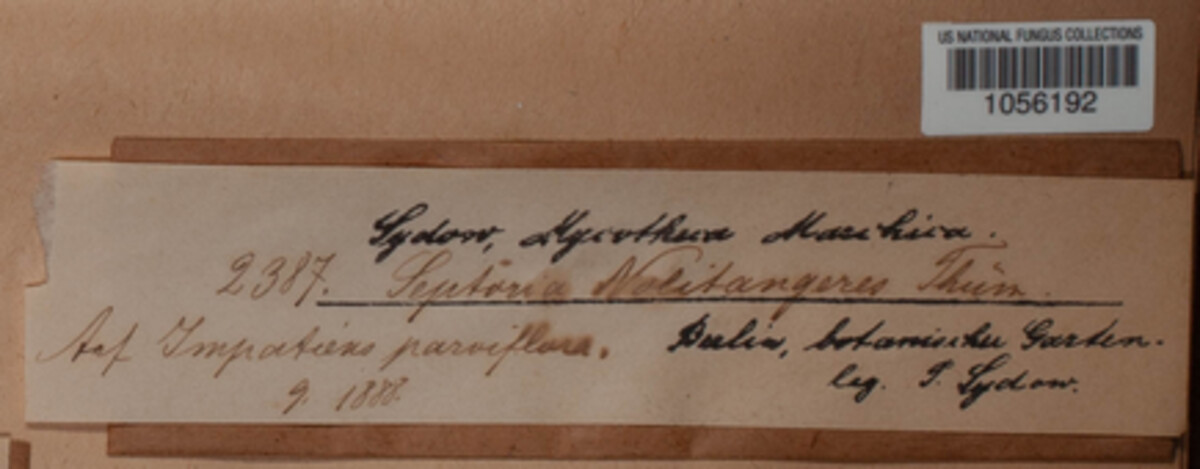 US NATIONAL FUNGUS COLLECTIONS
1056192
Sydow, Mycotheca Marchica.
2387. Septoria Nolitangeres Thüm.
Auf Impatiens parviflora.
9. 1888.
Berlin, botanischer Garten.
leg. P. Sydow.